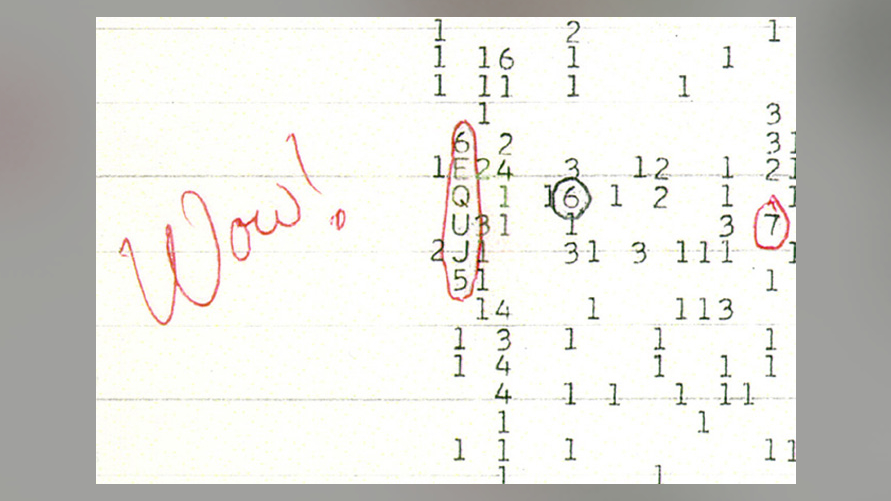 1 2 1
1 16 1 1
1 11 1 1
1 3
6 2 31
1E24 3 12 1 21
Q 1 16 1 2 1 1
U31 1 3 7
2J1 31 3 111 1
51 1
14 1 113
1 3 1 1 1
1 4 1 1 1
4 1 1 1 11
1 1
1 1 1 11
1 1
Wow!